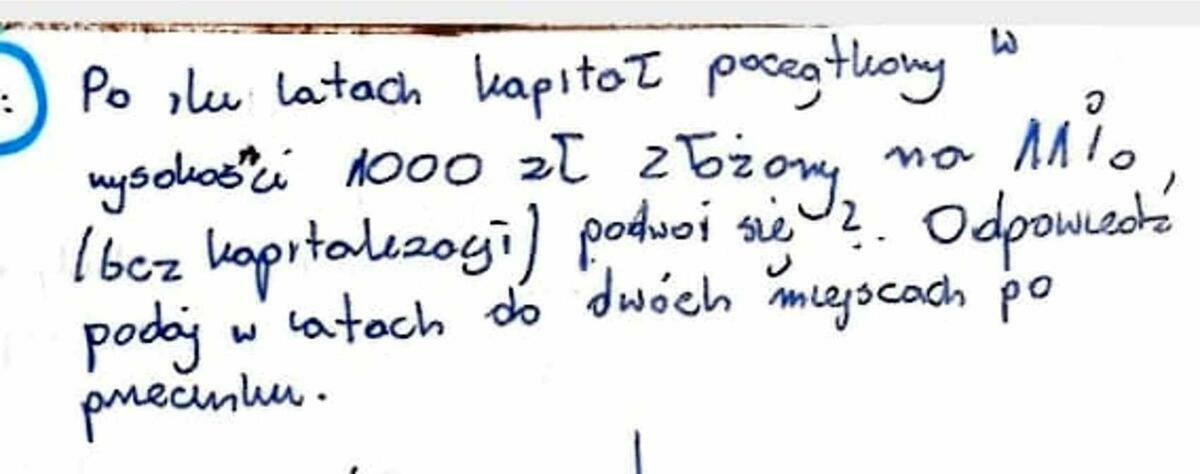 Po ilu latach kapitał początkowy w
wysokości 1000 zł złożony na 11%,
(bez kapitalizacji) podwoi się?. Odpowiedź
podaj w latach do dwóch miejscach po
przecinku.